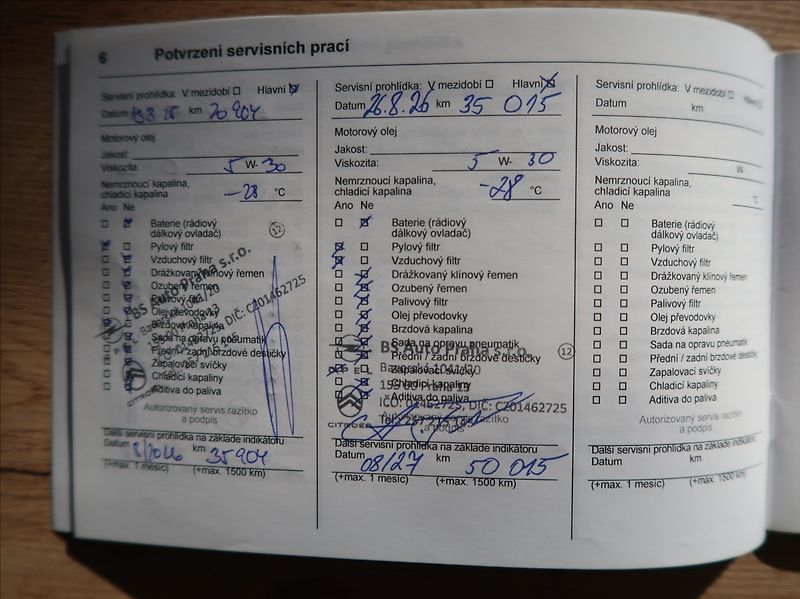 6 Potvrzení servisních prací
Servisní prohlídka: V mezidobí Hlavní
Datum km 20 904
Motorový olej
Jakost:
Viskozita: 5 W- 30
Nemrznoucí kapalina,
chladicí kapalina -28 °C
Ano Ne
Baterie (rádiový
dálkový ovladač)
12
Pylový filtr
Vzduchový filtr
Drážkovaný klínový řemen
Ozubený řemen
Palivový filtr
Olej převodovky
Brzdová kapalina
Sada na opravu pneumatik
Přední / zadní brzdové destičky
Zapalovací svíčky
Chladicí kapaliny
Aditiva do paliva
BS Auto Praha s.r.o.
DIČ: CZ01462725
CITROËN
Autorizovaný servis razítko
a podpis
Další servisní prohlídka na základě indikátoru
Datum 8/2026 km 35904
(+max. 1 měsíc) (+max. 1500 km)
Servisní prohlídka: V mezidobí Hlavní
Datum 26.8.26 km 35 015
Motorový olej
Jakost:
Viskozita: 5 W- 30
Nemrznoucí kapalina,
chladicí kapalina -28 °C
Ano Ne
Baterie (rádiový
dálkový ovladač)
Pylový filtr
Vzduchový filtr
Drážkovaný klínový řemen
Ozubený řemen
Palivový filtr
Olej převodovky
Brzdová kapalina
Sada na opravu pneumatik
BS Auto Praha s.r.o.
12
Přední / zadní brzdové destičky
Zapalovací svíčky
Chladicí kapaliny
Aditiva do paliva
OPEL
IČO: 01462725, DIČ: CZ01462725
CITROËN
Autorizovaný servis razítko
a podpis
Další servisní prohlídka na základě indikátoru
Datum 08/27 km 50 015
(+max. 1 měsíc) (+max. 1500 km)
Servisní prohlídka: V mezidobí Hlavní
Datum km
Motorový olej
Jakost:
Viskozita: W-
Nemrznoucí kapalina,
chladicí kapalina °C
Ano Ne
Baterie (rádiový
dálkový ovladač)
Pylový filtr
Vzduchový filtr
Drážkovaný klínový řemen
Ozubený řemen
Palivový filtr
Olej převodovky
Brzdová kapalina
Sada na opravu pneumatik
Přední / zadní brzdové destičky
Zapalovací svíčky
Chladicí kapaliny
Aditiva do paliva
Autorizovaný servis razítko
a podpis
Další servisní prohlídka na základě indikátoru
Datum km
(+max. 1 měsíc) (+max. 1500 km)